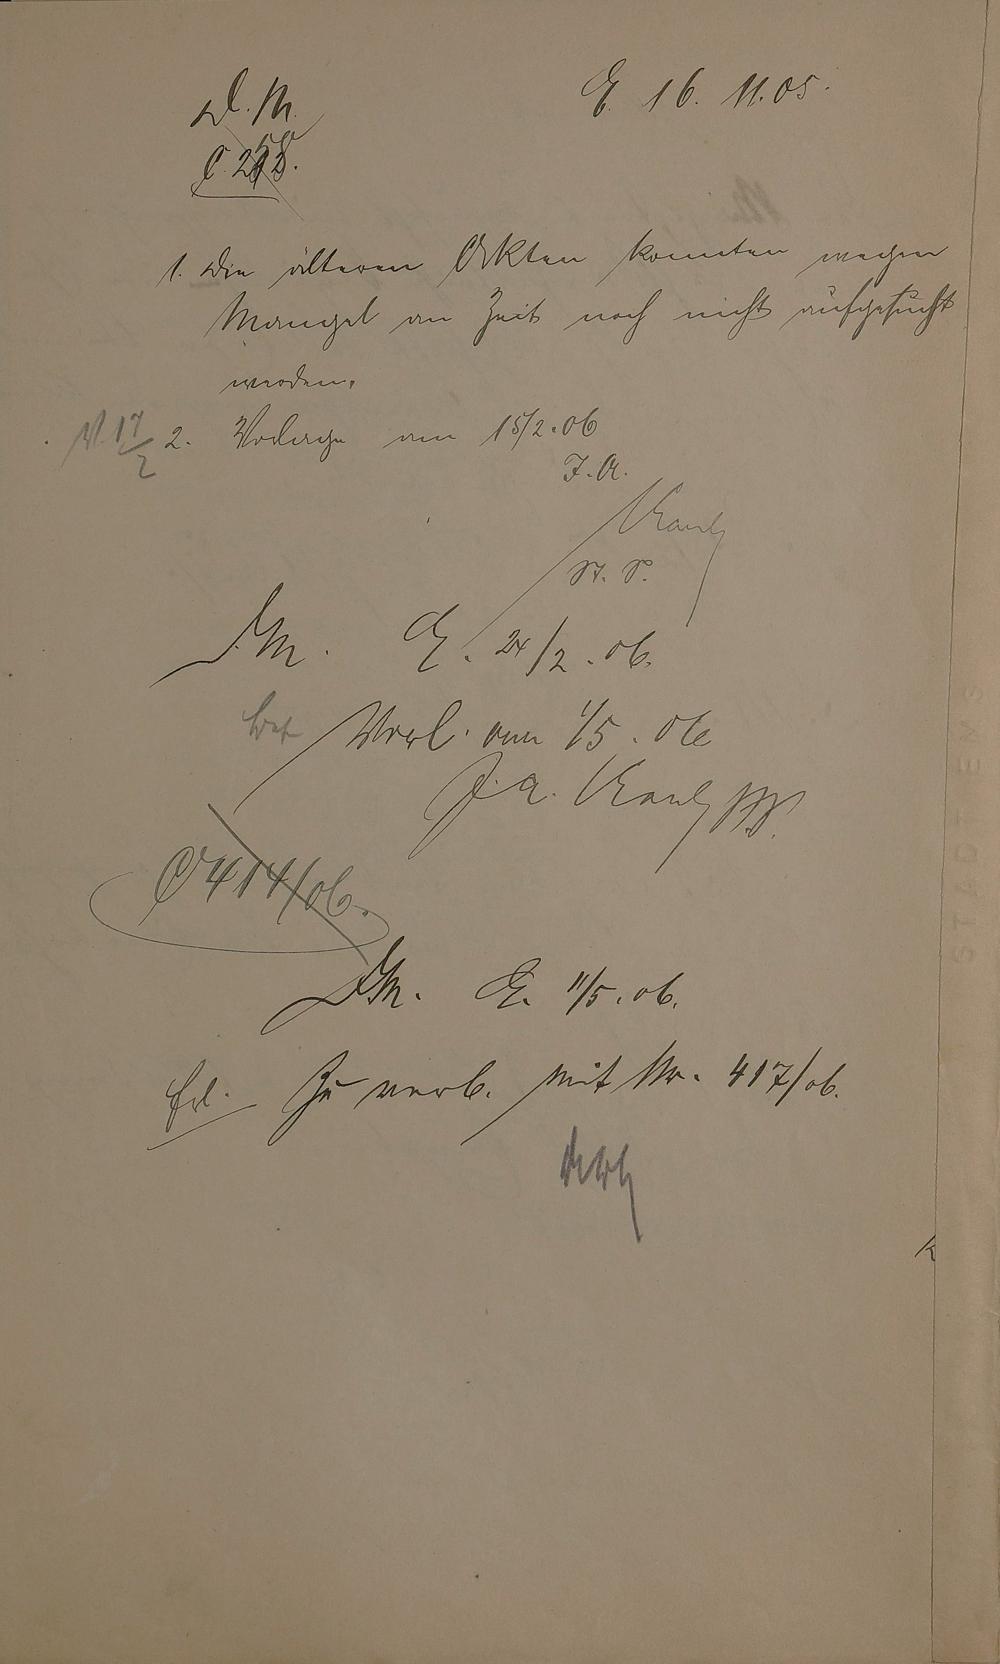 D. M. E. 16. 11. 05.
1. Die älteren Akten konnten wegen
Mangel an Zeit noch nicht aufgesucht
werden.
V. 17/2
2. Vorlage am 15/2.06
I. A.
D. M. E. 24/2.06.
Vorl. am 1/5.06
J. A.
C 414/06.
D. M. E. 11/5.06.
Zu verb. mit Nr. 417/06.
STADT E